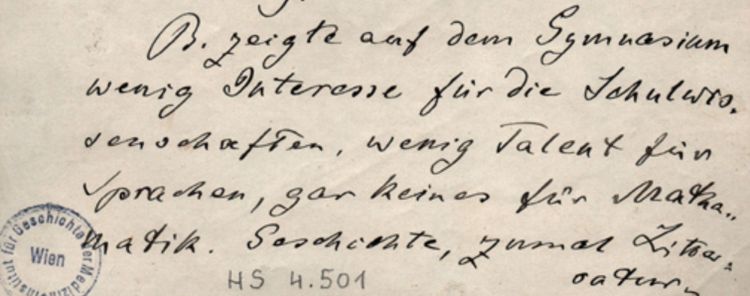 B. zeigte auf dem Gymnasium
wenig Interesse für die Schulwis-
senschaften, wenig Talent für
Sprachen, gar keines für Mathe-
matik. Geschichte, zumal Liter-
ratur-
Institut für Geschichte der Medizin
Wien
HS 4.501